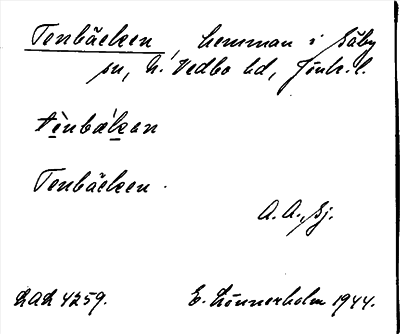 Tenbäcken, hemman i Säby
sn, N. Vedbo hd, Jönk. l.
tènbækan
Tenbäcken.
A. A., sj.
LAL 4259.
E. Linnerholm 1944.